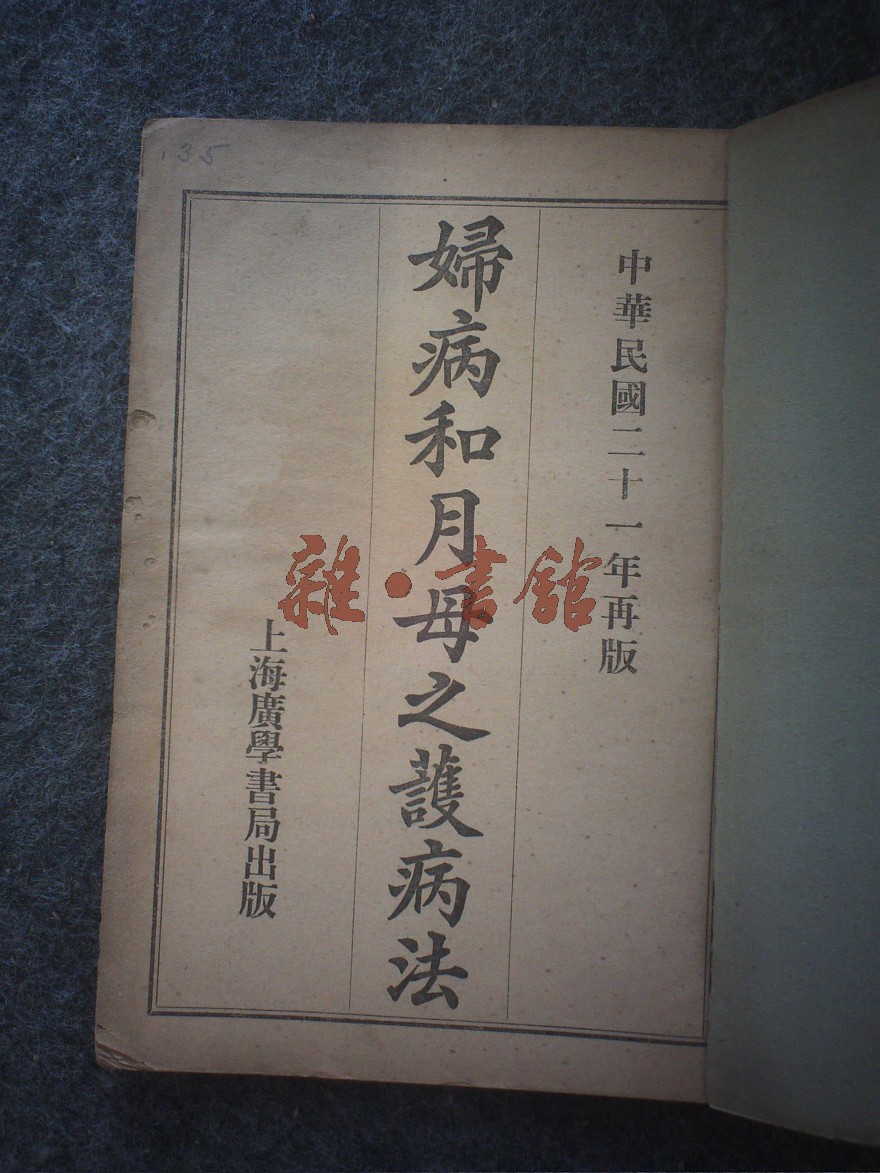 中華民國二十一年再版
婦病和月母之護病法
上海廣學書局出版
35
雜·書館